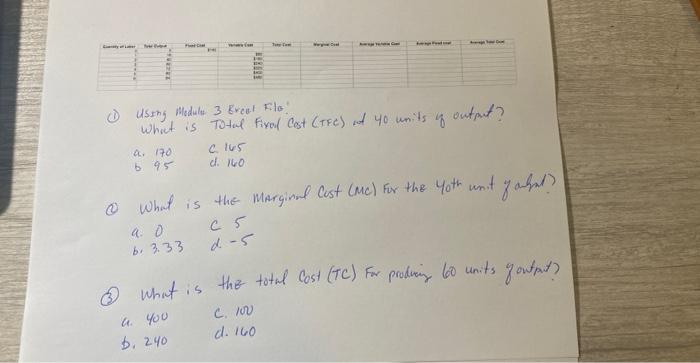 Quantity of Labor Total Output Fixed Cost Variable Cost Total Cost Marginal Cost Average Variable Cost Average Fixed Cost Average Total Cost
① Using Module 3 Excel File!
What is Total Fixed Cost (TFC) at 40 units of output?
a. 170 c. 165
b 95 d. 160
② What is the Marginal Cost (MC) for the 40th unit of output?
a. 0 c 5
b. 3.33 d. -5
③ What is the total Cost (TC) For producing 60 units of output?
a. 400 c. 100
b. 240 d. 160